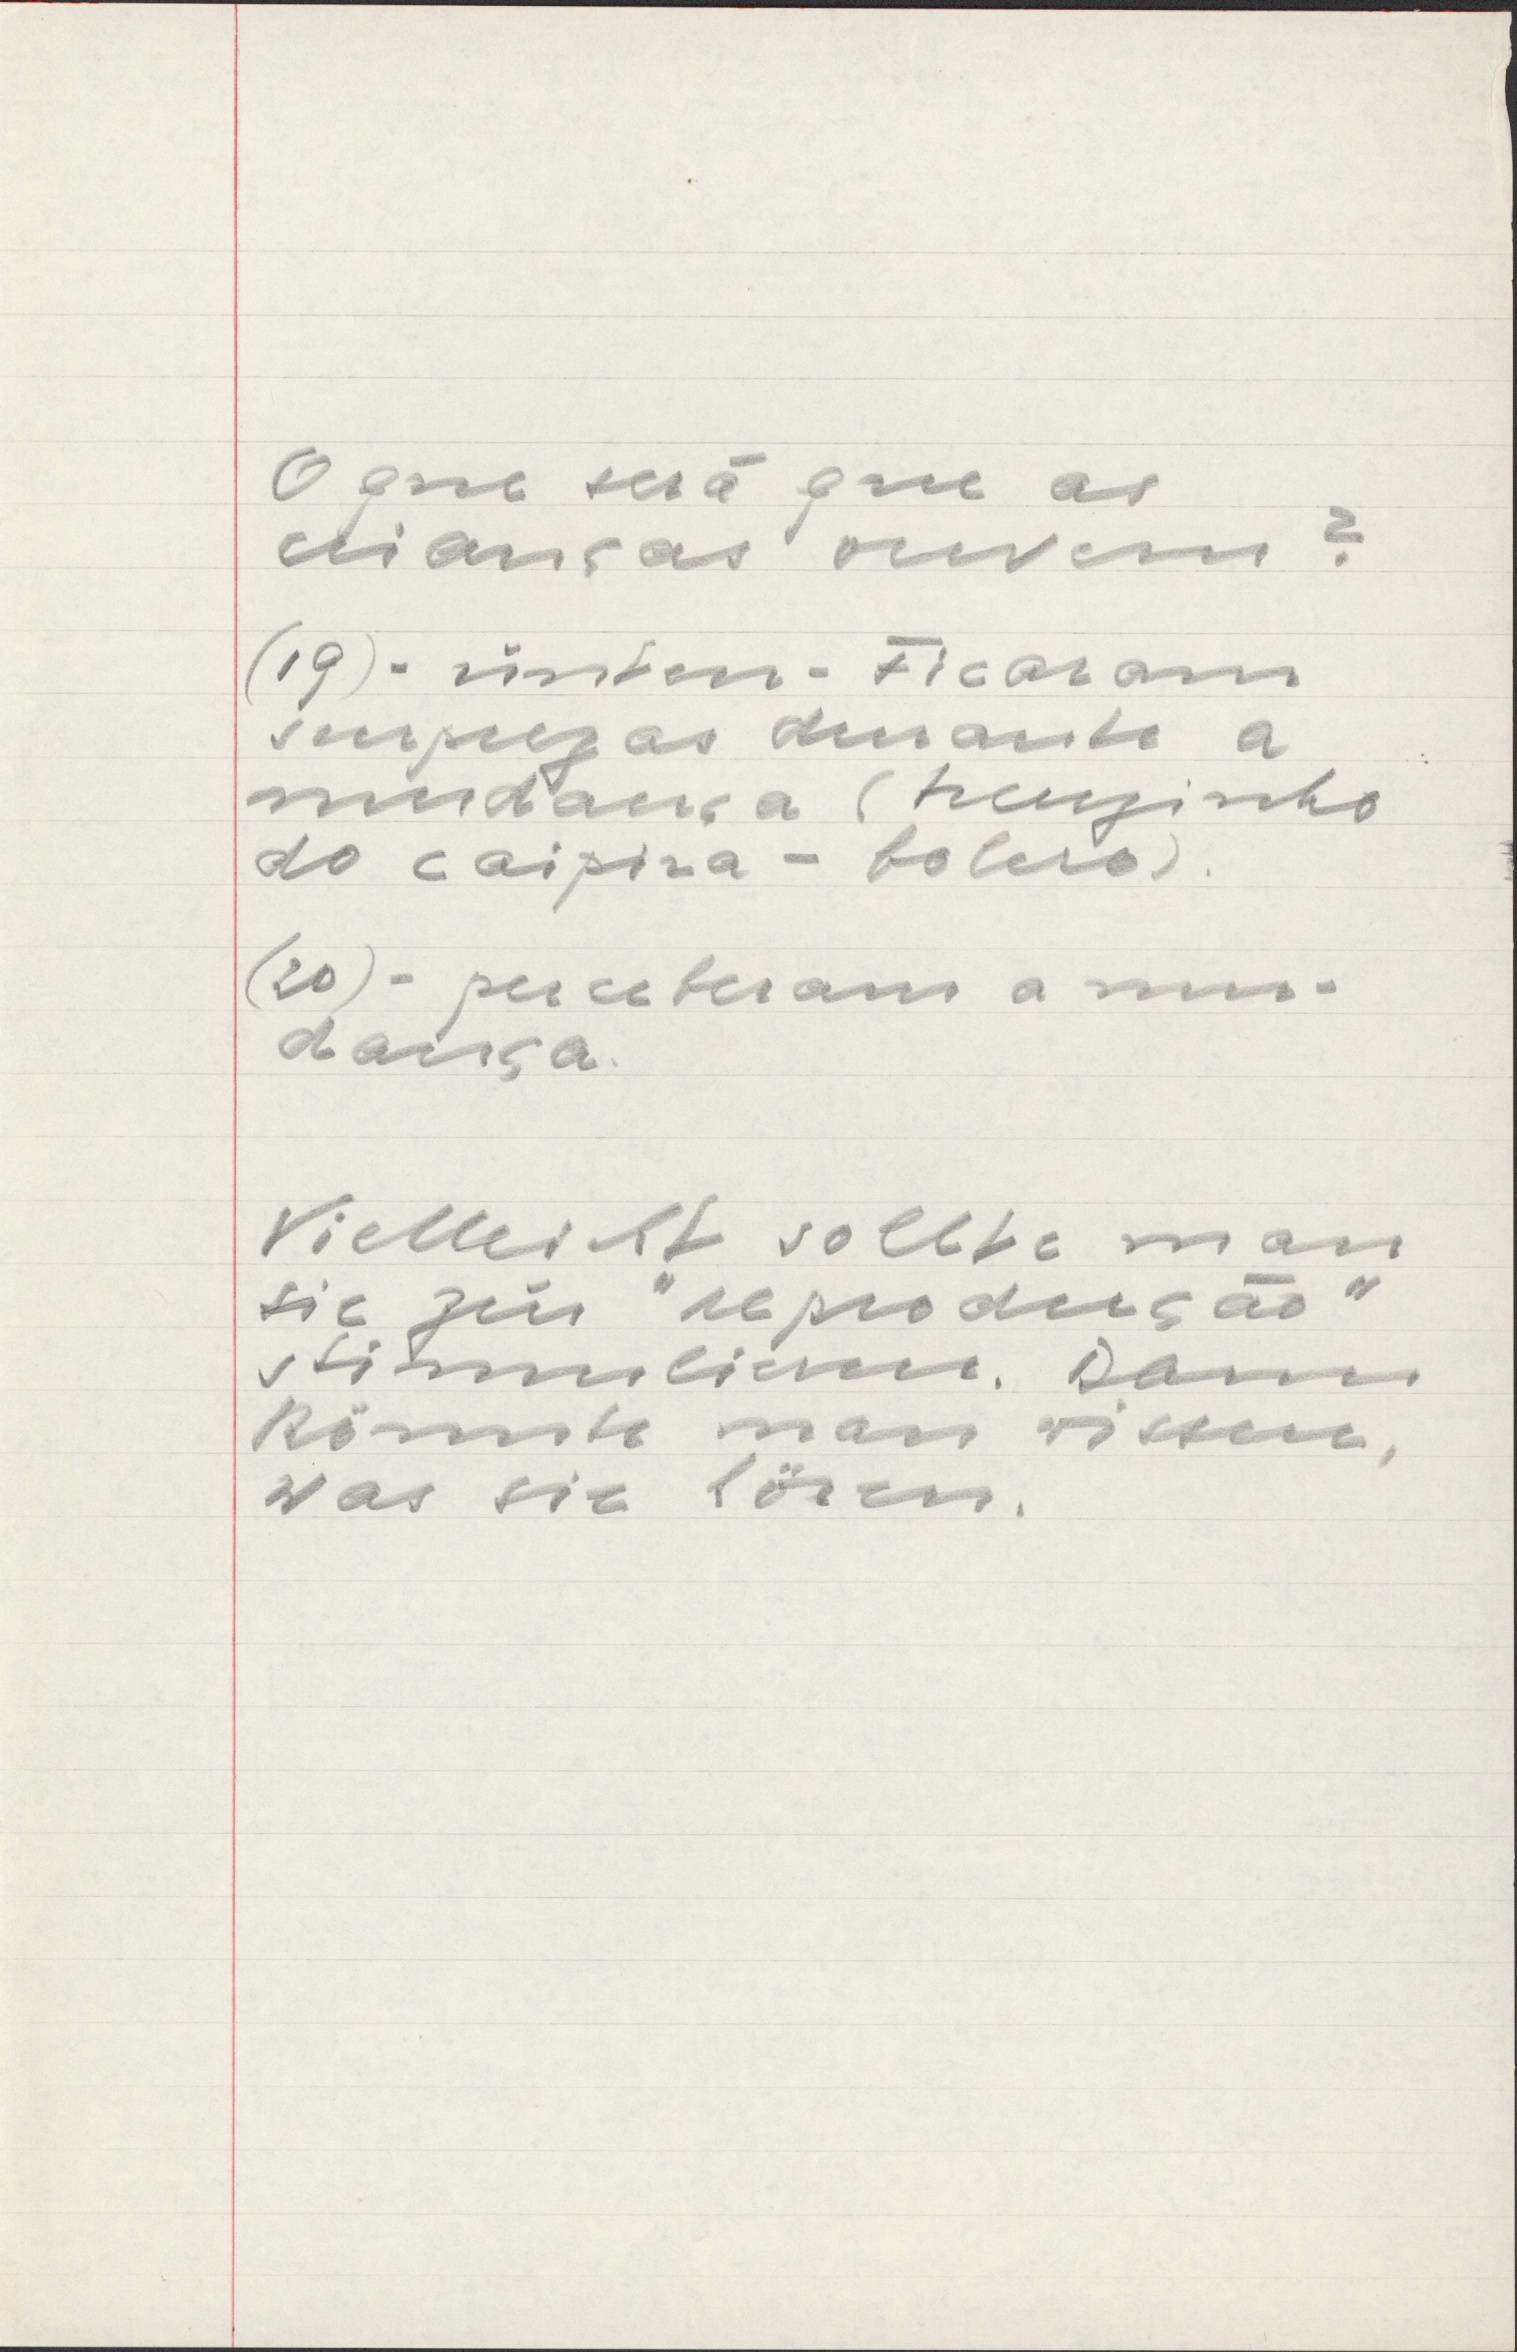 O que será que as
crianças ouvem?
(19) - Ficaram
surprezas durante a
mudança (trenzinho
do caipira - bolero).
(20) - perceberam a mu-
dança.
Vielleicht sollte man
sie zur "reprodução"
stimulieren. Dann
könnte man wissen,
was sie hören.